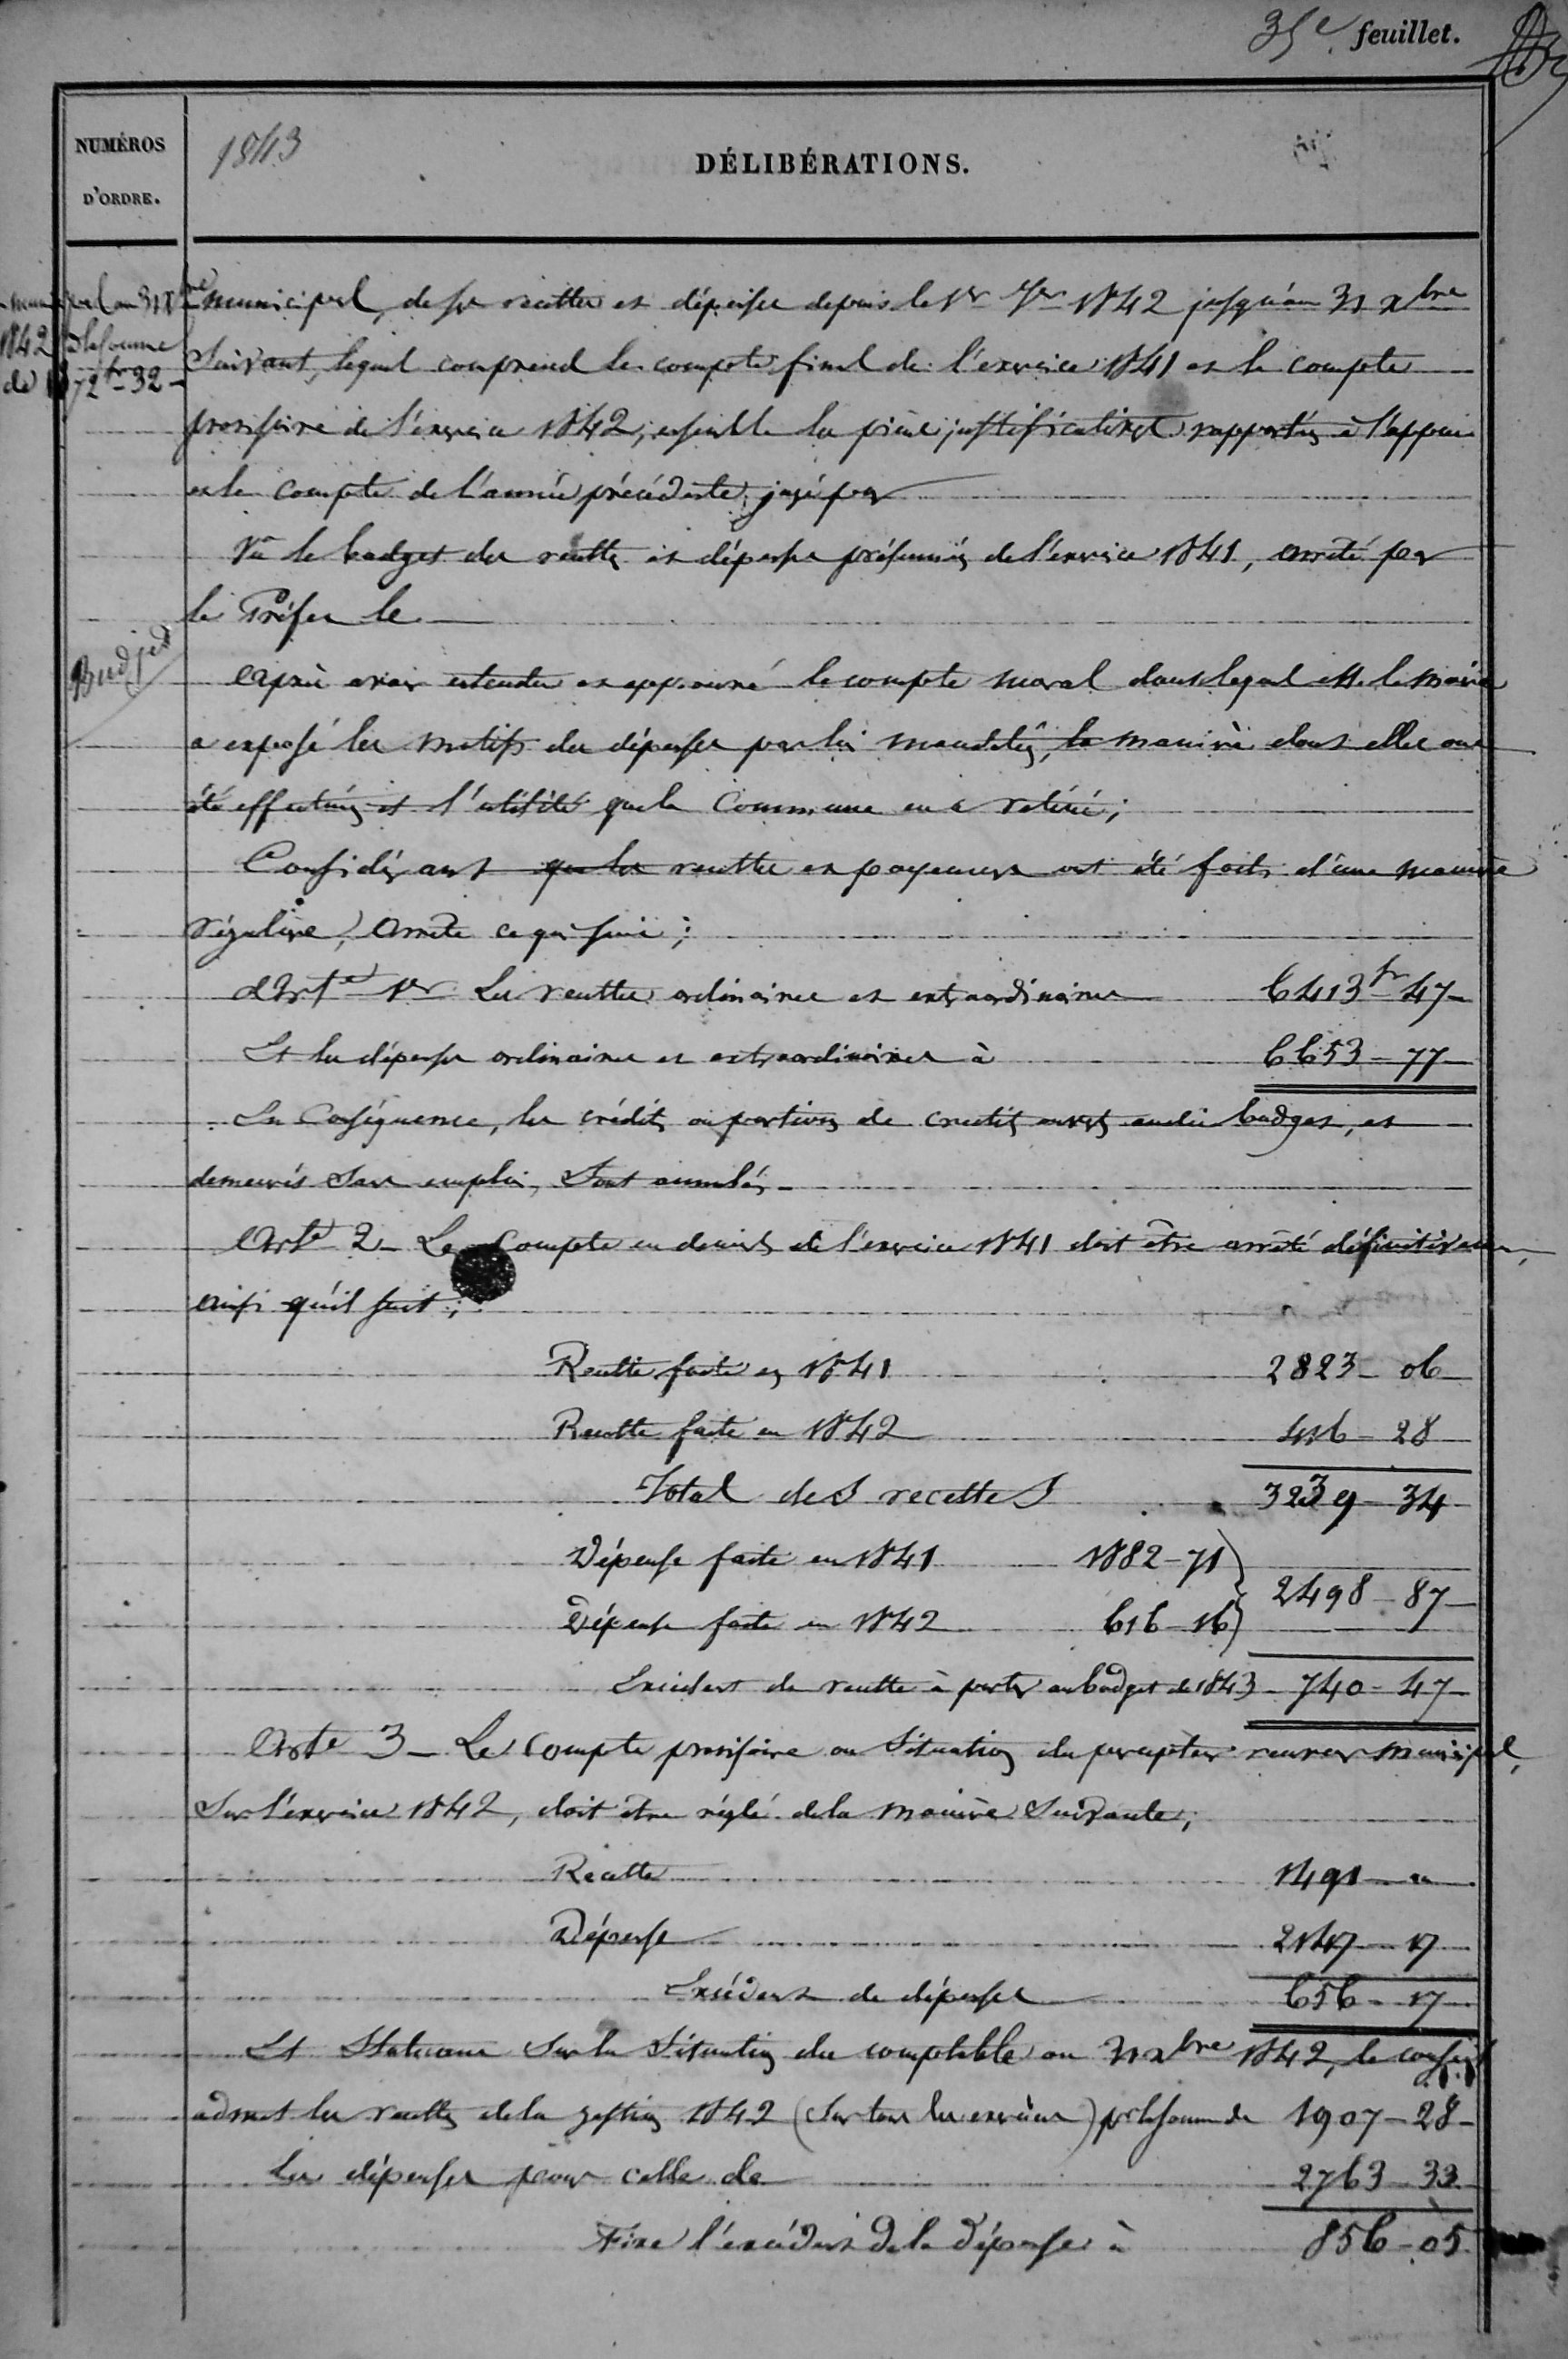 35e feuillet.
NUMÉROS D'ORDRE.
1843
DÉLIBÉRATIONS.
1842 de la somme
de 72 fr 32
municipal, de ses recettes et dépenses depuis le 1er Jer 1842 jusqu'au 31 xbre
Suivant, lequel comprend le compte final de l'exercice 1841 et le compte
provisoire de l'exercice 1842, ensemble les pièces justificatives rapportées à l'appui
et le compte de l'année précédente jugé par
Vu le budget des recettes et dépenses présumées de l'exercice 1841, arrêté par
le Préfet le
Budjed
Après avoir entendu et approuvé le compte moral dans lequel M. le Maire
a exposé les motifs des dépenses par lui mandatées, la manière dont elles ont
été effectuées et l'utilité que la Commune en a retirée;
Considérant que les recettes et payements ont été faits d'une manière
régulière, Arrête ce qui suit;
Arte 1er Les recettes ordinaires et extraordinaires 6413 fr 47
Et les dépenses ordinaires et extraordinaires à 6653 - 77
En Conséquence, les crédits ou portions de crédits ouverts audit budget, et
demeurés sans emploi, Sont annulés -
Arte 2 - Le Compte en deniers de l'exercice 1841 doit être arrêté définitivement,
ainsi qu'il suit;
Recette faite en 1841 2823 - 06
Recette faite en 1842 416 - 28
Total des recettes 3239 - 34
Dépense faite en 1841 1882 - 71
2498 - 87
Dépense faite en 1842 616 - 16
Excédent de recette à porter au budget de 1843 - 740 - 47
Arte 3 - Le Compte provisoire ou Situation du percepteur receveur municipal,
Sur l'exercice 1842, doit être réglé de la manière Suivante;
Recette 1491 - "
Dépense 2147 - 17
Excédent de dépense 656 - 17
Et Statuant Sur la Situation du comptable au 31 xbre 1842, le conseil
admet les recettes de la gestion 1842 (Sur tous les exercices) pr la somme de 1907 - 28 -
Les dépenses pour celle de 2763 - 33
Fixe l'excédent de la Dépense à 856 - 05